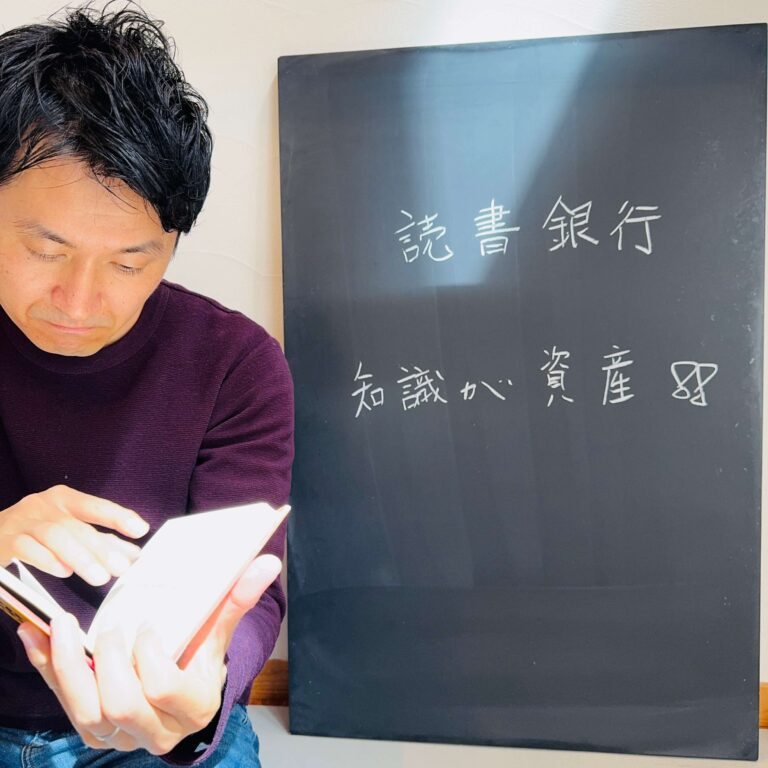 読書銀行
知識が資産